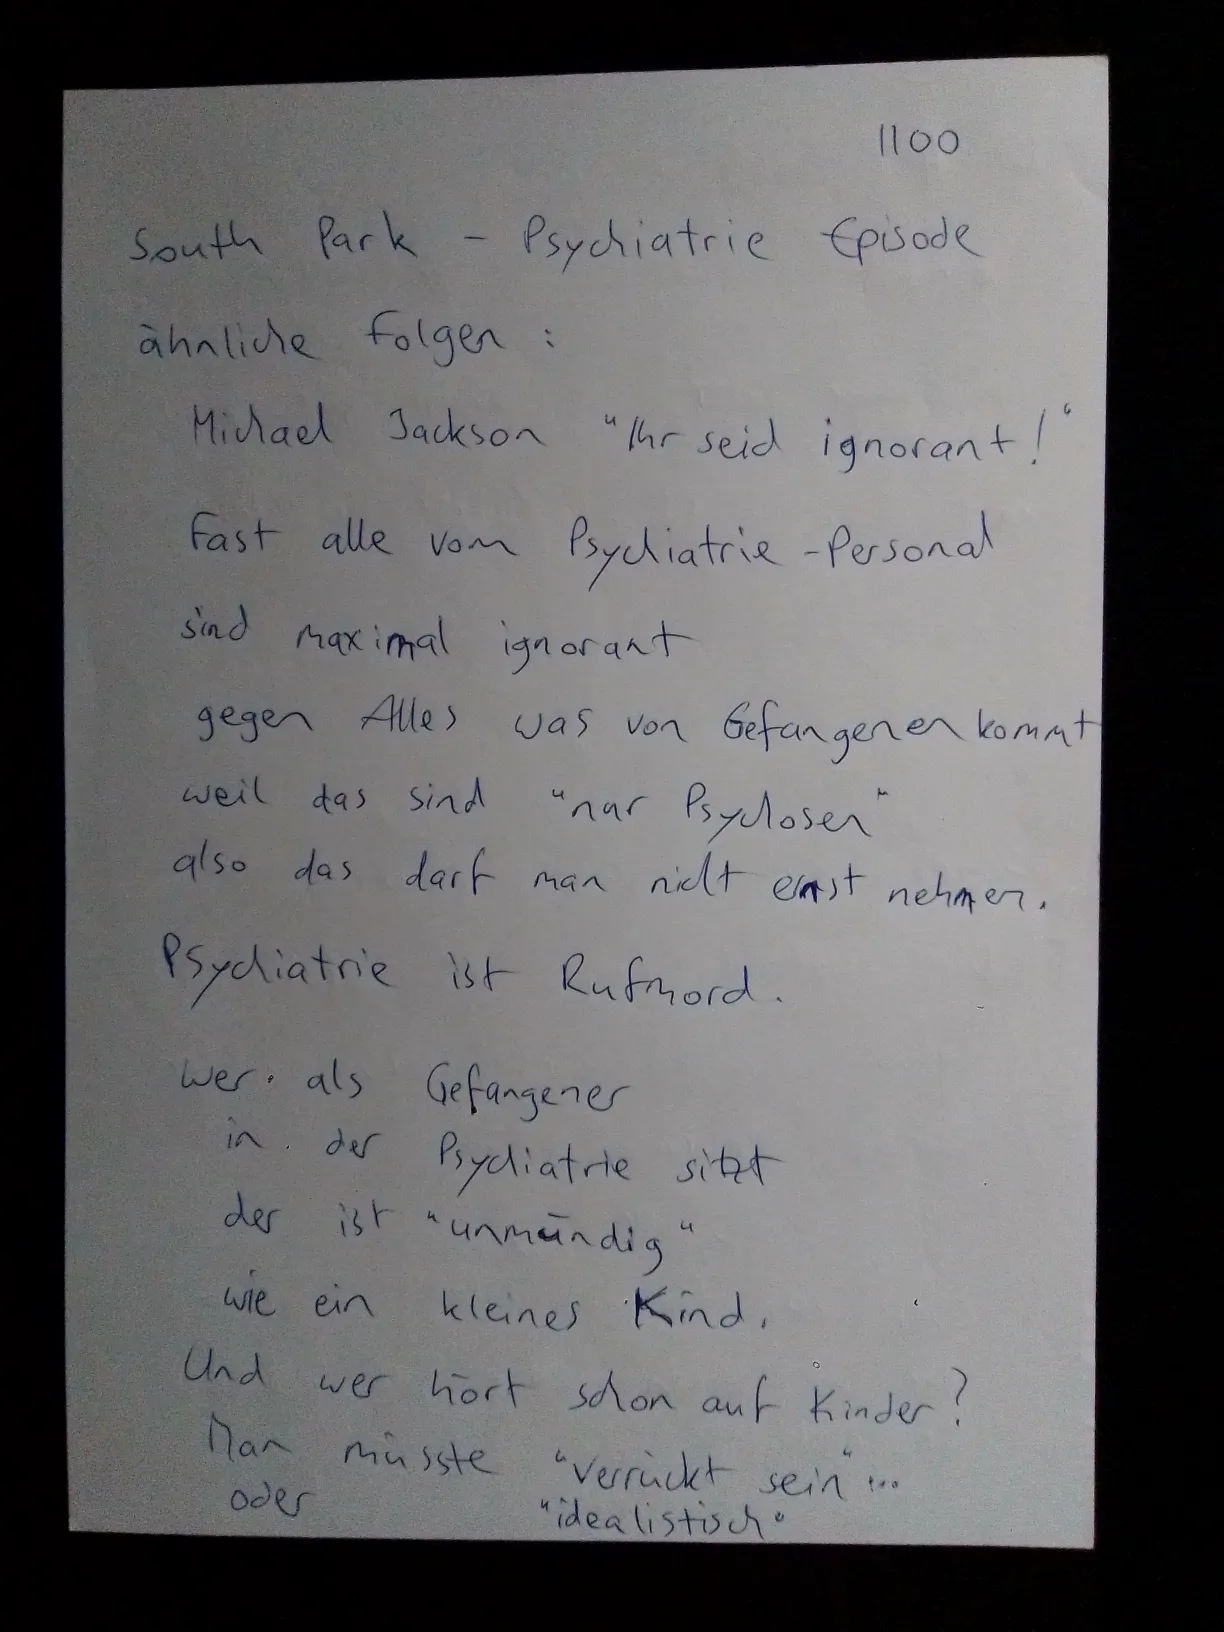 1100
South Park - Psychiatrie Episode
ähnliche Folgen :
Michael Jackson "Ihr seid ignorant!"
Fast alle vom Psychiatrie-Personal
sind maximal ignorant
gegen Alles was von Gefangenen kommt
weil das sind "nur Psychosen"
also das darf man nicht ernst nehmen.
Psychiatrie ist Rufmord.
wer als Gefangener
in der Psychiatrie sitzt
der ist "unmündig"
wie ein kleines Kind.
Und wer hört schon auf Kinder?
Man müsste "verrückt sein"...
oder "idealistisch"